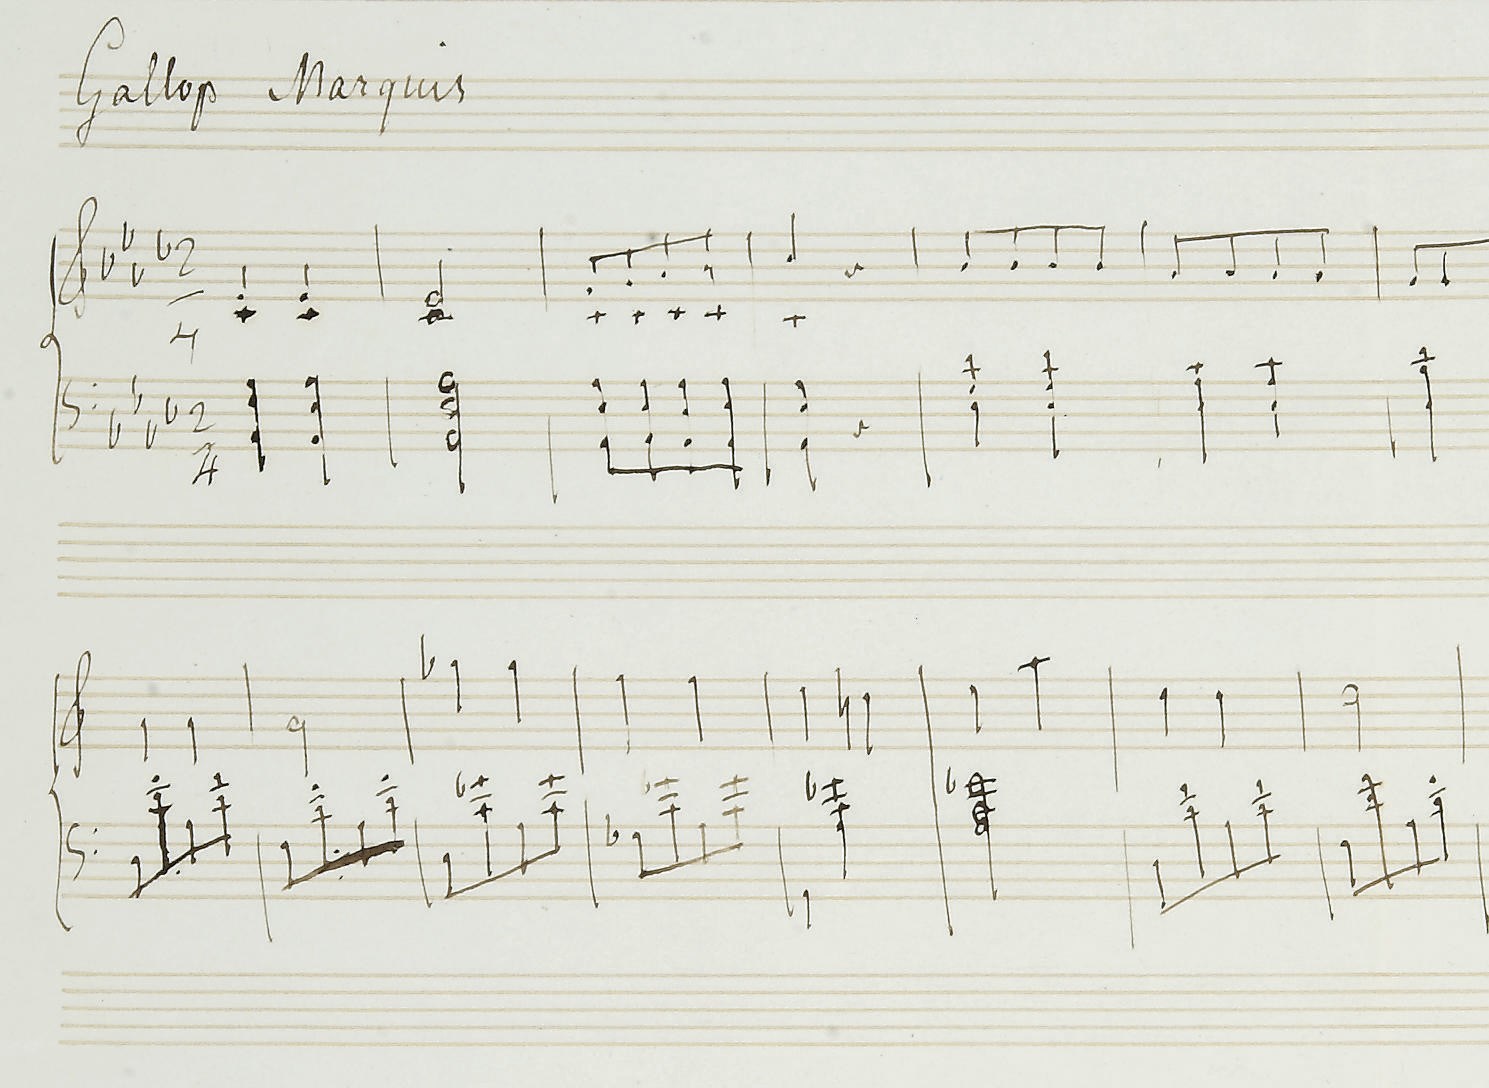 Gallop Marquis
2
4
2
4